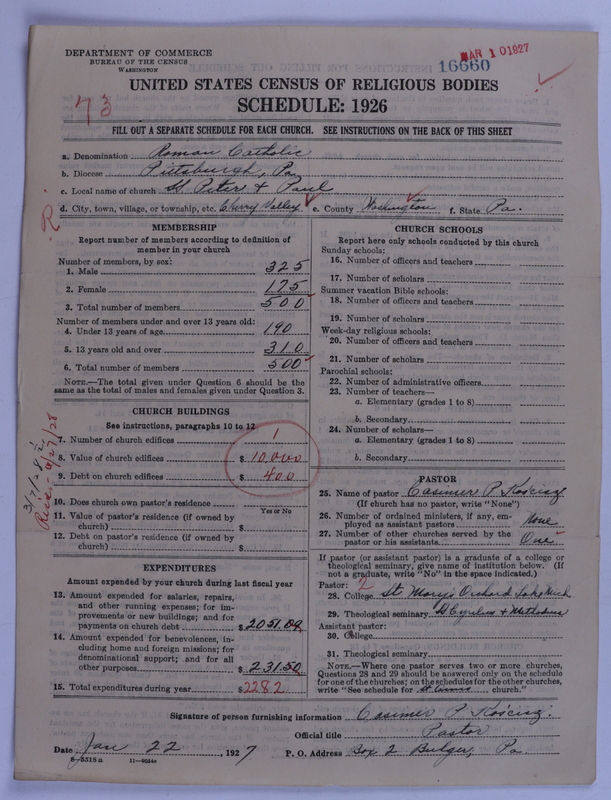 DEPARTMENT OF COMMERCE
BUREAU OF THE CENSUS
WASHINGTON
MAR 1 01927
16660
UNITED STATES CENSUS OF RELIGIOUS BODIES
SCHEDULE: 1926
73
FILL OUT A SEPARATE SCHEDULE FOR EACH CHURCH. SEE INSTRUCTIONS ON THE BACK OF THIS SHEET
a. Denomination Roman Catholic
b. Diocese Pittsburgh, Pa
c. Local name of church St Peter & Paul
d. City, town, village, or township, etc. Cherry Valley e. County Washington f. State Pa.
R.
MEMBERSHIP
Report number of members according to definition of
member in your church
Number of members, by sex:
1. Male 325
2. Female 175
3. Total number of members 500
Number of members under and over 13 years old:
4. Under 13 years of age 190
5. 13 years old and over 310
6. Total number of members 500
NOTE.—The total given under Question 6 should be the
same as the total of males and females given under Question 3.
CHURCH BUILDINGS
See instructions, paragraphs 10 to 12
7. Number of church edifices 1
8. Value of church edifices $ 10,000
9. Debt on church edifices $ 400
10. Does church own pastor's residence?
Yes or No
11. Value of pastor's residence (if owned by
church) $
12. Debt on pastor's residence (if owned by
church) $
EXPENDITURES
Amount expended by your church during last fiscal year
13. Amount expended for salaries, repairs,
and other running expenses; for im-
provements or new buildings; and for
payments on church debt $ 2051.00
14. Amount expended for benevolences, in-
cluding home and foreign missions; for
denominational support; and for all
other purposes $ 231.50
15. Total expenditures during year $2282
CHURCH SCHOOLS
Report here only schools conducted by this church
Sunday schools:
16. Number of officers and teachers
17. Number of scholars
Summer vacation Bible schools:
18. Number of officers and teachers
19. Number of scholars
Week-day religious schools:
20. Number of officers and teachers
21. Number of scholars
Parochial schools:
22. Number of administrative officers
23. Number of teachers—
a. Elementary (grades 1 to 8)
b. Secondary
24. Number of scholars—
a. Elementary (grades 1 to 8)
b. Secondary
PASTOR
25. Name of pastor Casimer P Kościsz
(If church has no pastor, write "None")
26. Number of ordained ministers, if any, em-
ployed as assistant pastors None
27. Number of other churches served by the
pastor or his assistants One
If pastor (or assistant pastor) is a graduate of a college or
theological seminary, give name of institution below. (If
not a graduate, write "No" in the space indicated.)
Pastor: 2
28. College St Marys Orchard Lake Mich
29. Theological seminary SS Cyrilus & Methodius
Assistant pastor:
30. College
31. Theological seminary
NOTE.—Where one pastor serves two or more churches,
Questions 28 and 29 should be answered only on the schedule
for one of the churches; on the schedules for the other churches,
write "See schedule for church."
Signature of person furnishing information Casimer P Kościsz.
Official title Pastor
Date Jan 22, 1927 P. O. Address Box 2 Bulger, Pa.
8—5518a 11—9024a